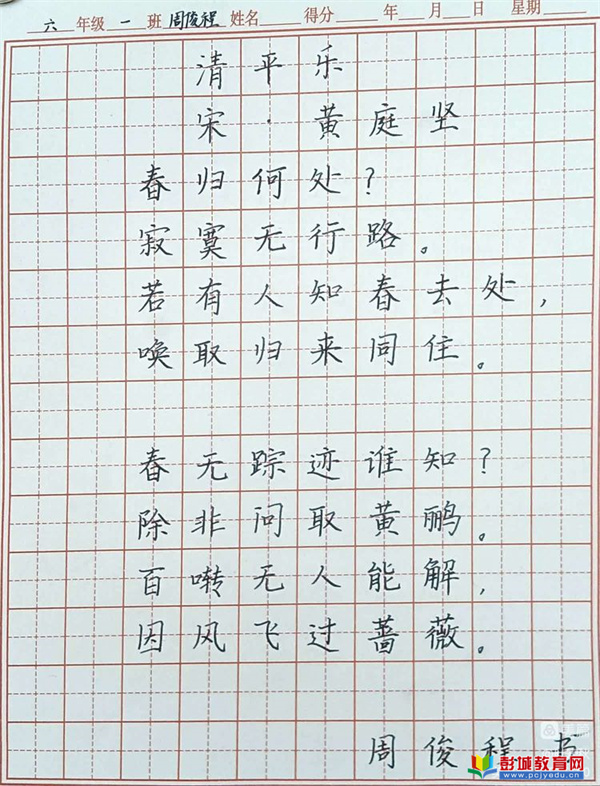 六 年级 一 班 周俊程 姓名 得分 年 月 日 星期
清平乐
宋·黄庭坚
春归何处?
寂寞无行路。
若有人知春去处,
唤取归来同住。
春无踪迹谁知?
除非问取黄鹂。
百啭无人能解,
因风飞过蔷薇。
周俊程书
彭城教育网
www.pcjyedu.cn